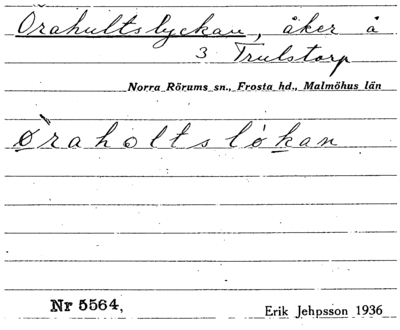 Örahultslyckan, åker å
3 Trulstorp
Norra Rörums sn., Frosta hd., Malmöhus län
Øraholtslökan
Nr 5564.
Erik Jehpsson 1936